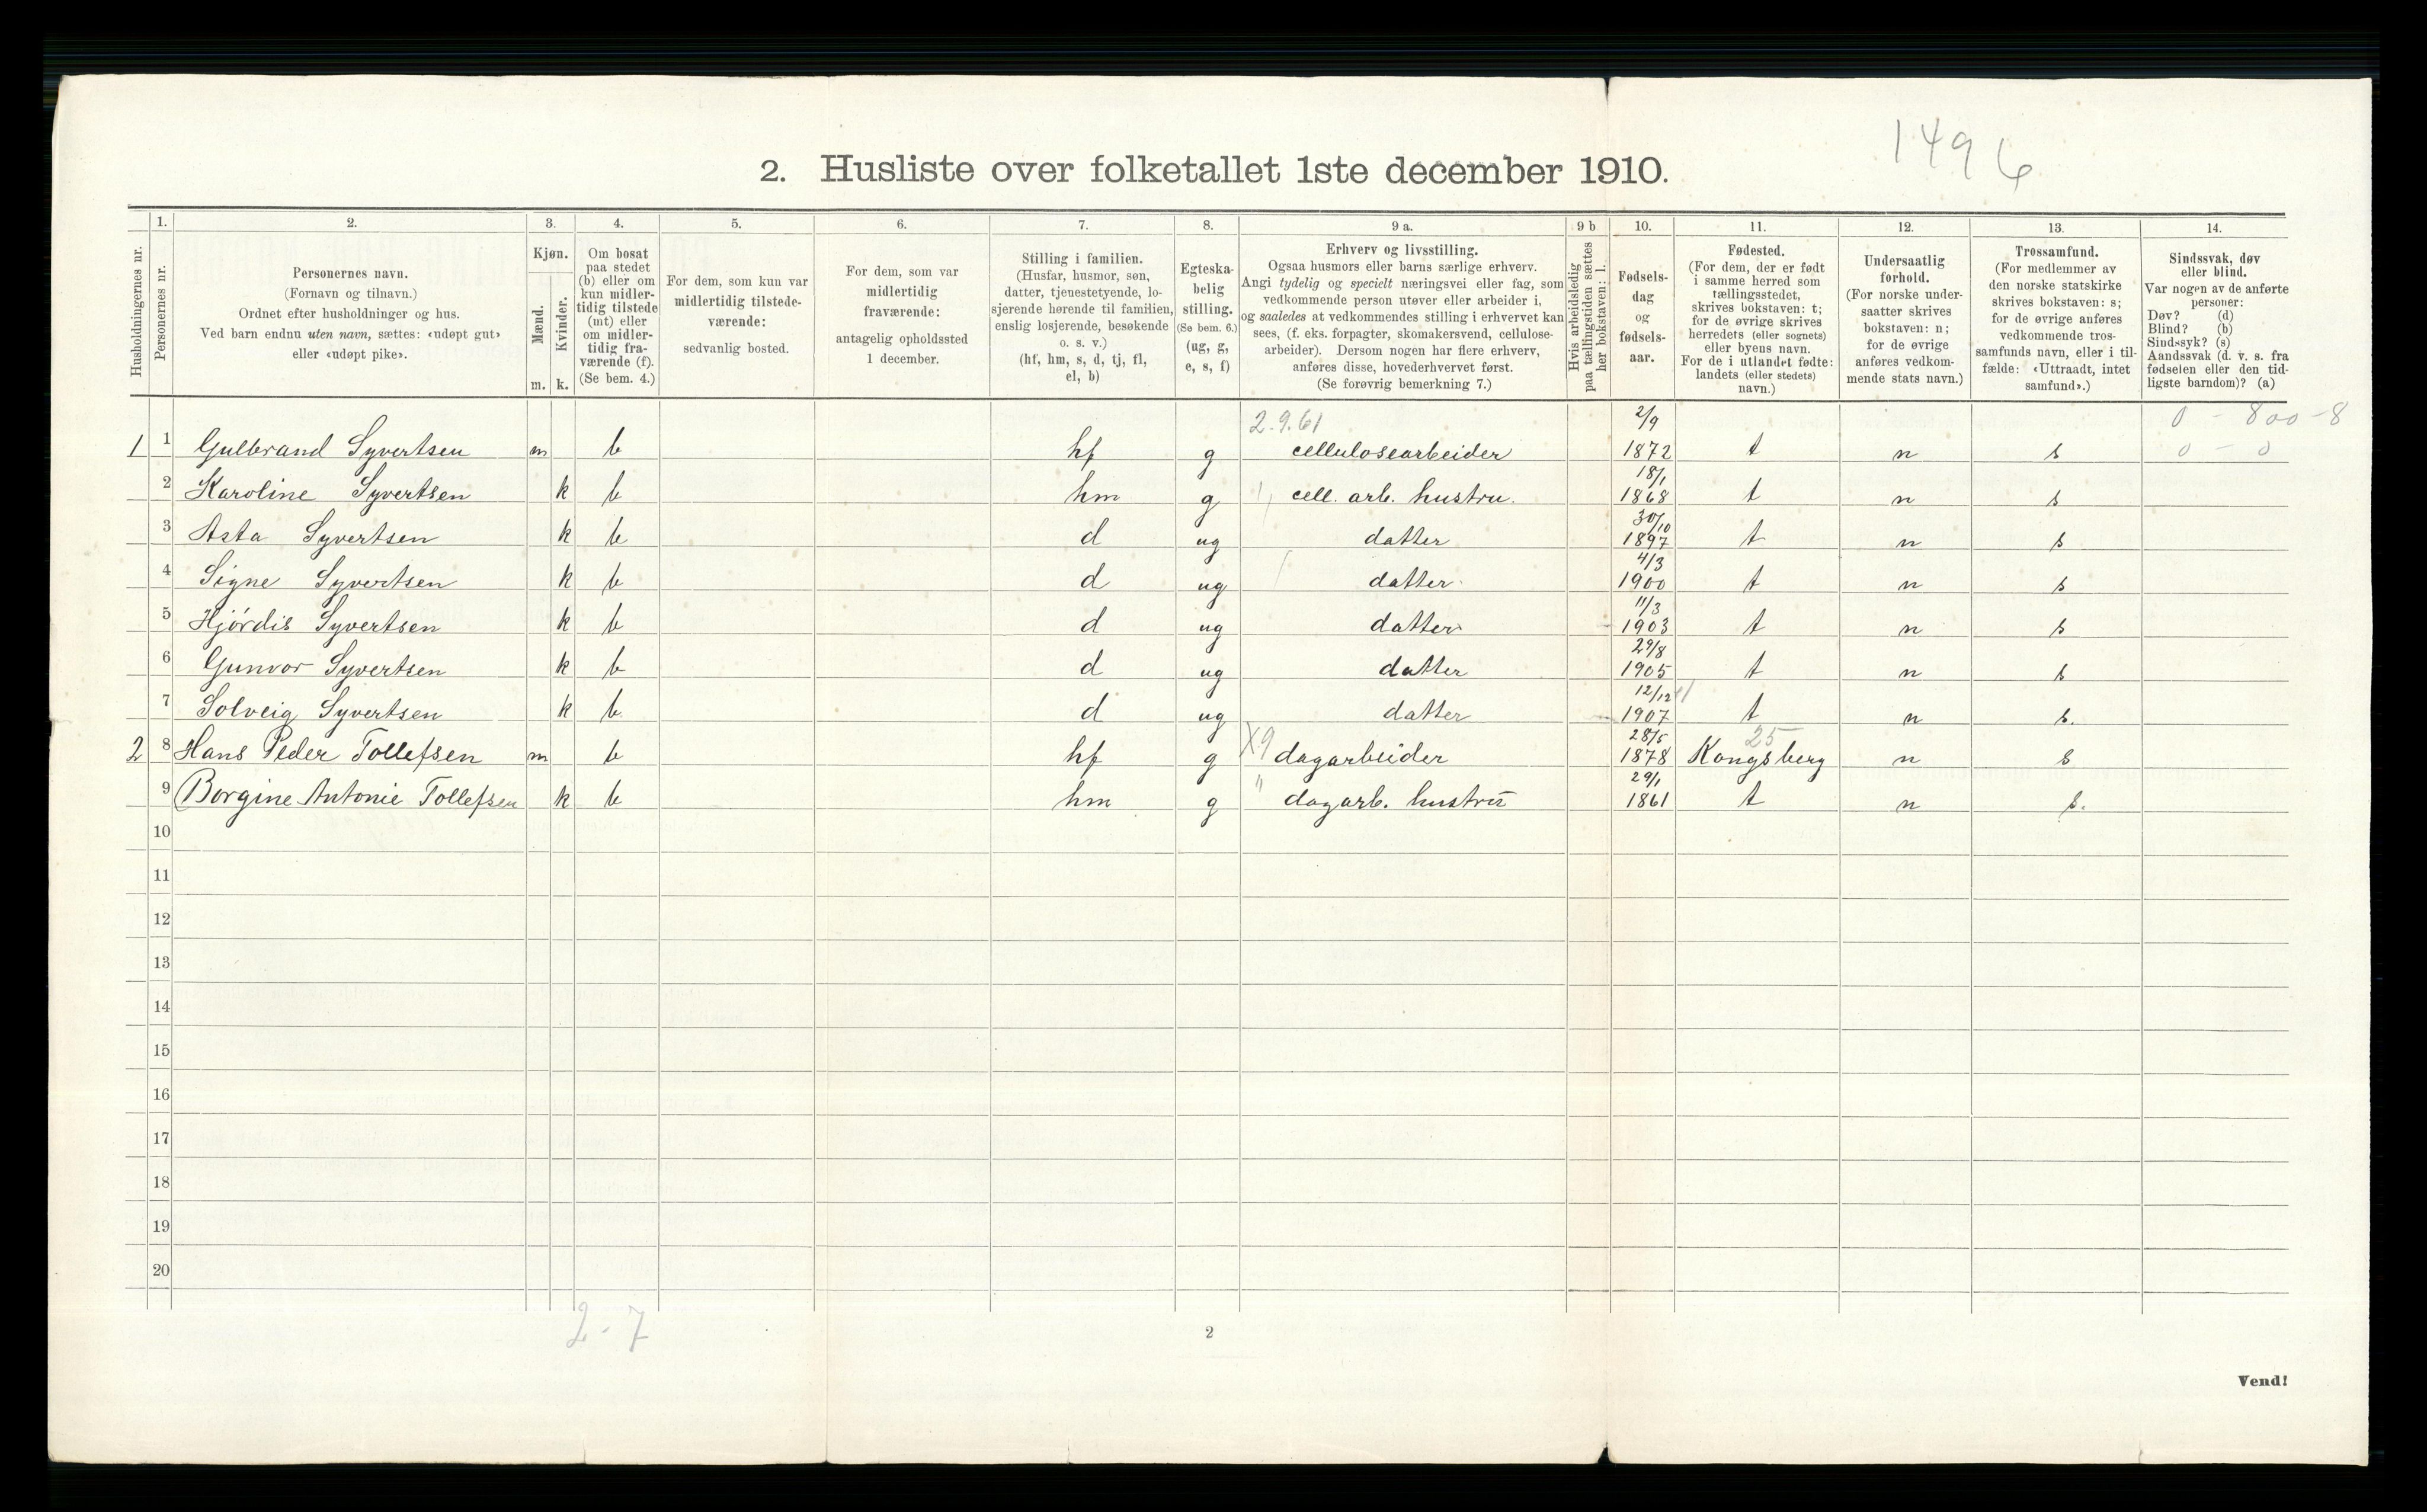 1496
2. Husliste over folketallet 1ste december 1910.
Husholdningernes nr.
1.
Personernes nr.
2.
Personernes navn.
(Fornavn og tilnavn.)
Ordnet efter husholdninger og hus.
Ved barn endnu uten navn, sættes: «udøpt gut»
eller «udøpt pike».
3.
Kjøn.
Mænd.
Kvinder.
m. k.
4.
Om bosat
paa stedet
(b) eller om
kun midler-
tidig tilstede
(mt) eller
om midler-
tidig fra-
værende (f).
(Se bem. 4.)
5.
For dem, som kun var
midlertidig tilstede-
værende:
sedvanlig bosted.
6.
For dem, som var
midlertidig
fraværende:
antagelig opholdssted
1 december.
7.
Stilling i familien.
(Husfar, husmor, søn,
datter, tjenestetyende, lo-
sjerende hørende til familien,
enslig losjerende, besøkende
o. s. v.)
(hf, hm, s, d, tj, fl,
el, b)
8.
Egteska-
belig
stilling.
(Se bem. 6.)
(ug, g,
e, s, f)
9 a.
Erhverv og livsstilling.
Ogsaa husmors eller barns særlige erhverv.
Angi tydelig og specielt næringsvei eller fag, som
vedkommende person utøver eller arbeider i,
og saaledes at vedkommendes stilling i erhvervet kan
sees, (f. eks. forpagter, skomakersvend, cellulose-
arbeider). Dersom nogen har flere erhverv,
anføres disse, hovederhvervet først.
(Se forøvrig bemerkning 7.)
9 b
Hvis arbeidsledig
paa tællingstiden sættes
her bokstaven: l.
10.
Fødsels-
dag
og
fødsels-
aar.
11.
Fødested.
(For dem, der er født
i samme herred som
tællingsstedet,
skrives bokstaven: t;
for de øvrige skrives
herredets (eller sognets)
eller byens navn.
For de i utlandet fødte:
landets (eller stedets)
navn.)
12.
Undersaatlig
forhold.
(For norske under-
saatter skrives
bokstaven: n;
for de øvrige
anføres vedkom-
mende stats navn.)
13.
Trossamfund.
(For medlemmer av
den norske statskirke
skrives bokstaven: s;
for de øvrige anføres
vedkommende tros-
samfunds navn, eller i til-
fælde: «Uttraadt, intet
samfund».)
14.
Sindssvak, døv
eller blind.
Var nogen av de anførte
personer:
Døv? (d)
Blind? (b)
Sindssyk? (s)
Aandssvak (d. v. s. fra
fødselen eller den tid-
ligste barndom)? (a)
2.9.61 2/9 0 - 800-8
1 1 Gulbrand Syvertsen m b hf g cellulosearbeider 1872 t n s 0 - 0
18/1
2 Karoline Syvertsen k b hm g cell. arb. hustru. 1868 t n s
30/10
3 Asta Syvertsen k b d ug datter 1897 t n s
4/3
4 Signe Syvertsen k b d ug datter 1900 t n s
11/3
5 Hjørdis Syvertsen k b d ug datter 1903 t n s
29/8
6 Gunvor Syvertsen k b d ug datter 1905 t n s
12/12
7 Solveig Syvertsen k b d ug datter 1907 t n s.
28/5 25
2 8 Hans Peder Tollefsen m b hf g X9 dagarbeider 1878 Kongsberg n s
29/1
9 Borgine Antonie Tollefsen k b hm g " dagarb. hustru 1861 t n s.
10
11
12
13
14
15
16
17
18
19
20
2-7
2
Vend!